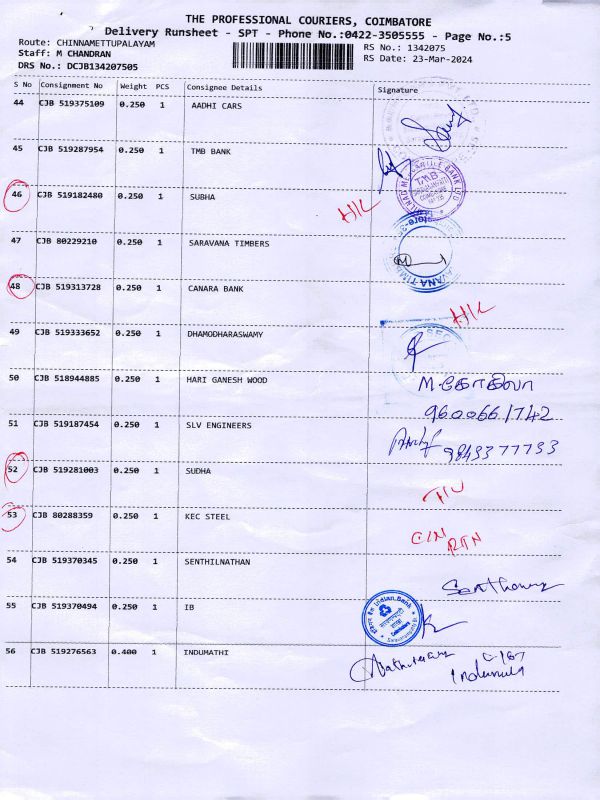 THE PROFESSIONAL COURIERS, COIMBATORE
Delivery Runsheet - SPT - Phone No.:0422-3505555 - Page No.:5
Route: CHINNAMETTUPALAYAM
RS No.: 1342075
Staff: M CHANDRAN
RS Date: 23-Mar-2024
DRS No.: DCJB134207505
S No Consignment No Weight PCS Consignee Details Signature
44 CJB 519375109 0.250 1 AADHI CARS
45 CJB 519287954 0.250 1 TMB BANK
TMB
46 CJB 519182480 0.250 1 SUBHA H/L
47 CJB 80229210 0.250 1 SARAVANA TIMBERS
48 CJB 519313728 0.250 1 CANARA BANK H/L
49 CJB 519333652 0.250 1 DHAMODHARASWAMY
50 CJB 518944885 0.250 1 HARI GANESH WOOD M.கோகிலா
9600661742
51 CJB 519187454 0.250 1 SLV ENGINEERS 9843377733
52 CJB 519281003 0.250 1 SUDHA
53 CJB 80288359 0.250 1 KEC STEEL C/N
RTN
54 CJB 519370345 0.250 1 SENTHILNATHAN
55 CJB 519370494 0.250 1 IB
Indian Bank
56 CJB 519276563 0.400 1 INDUMATHI